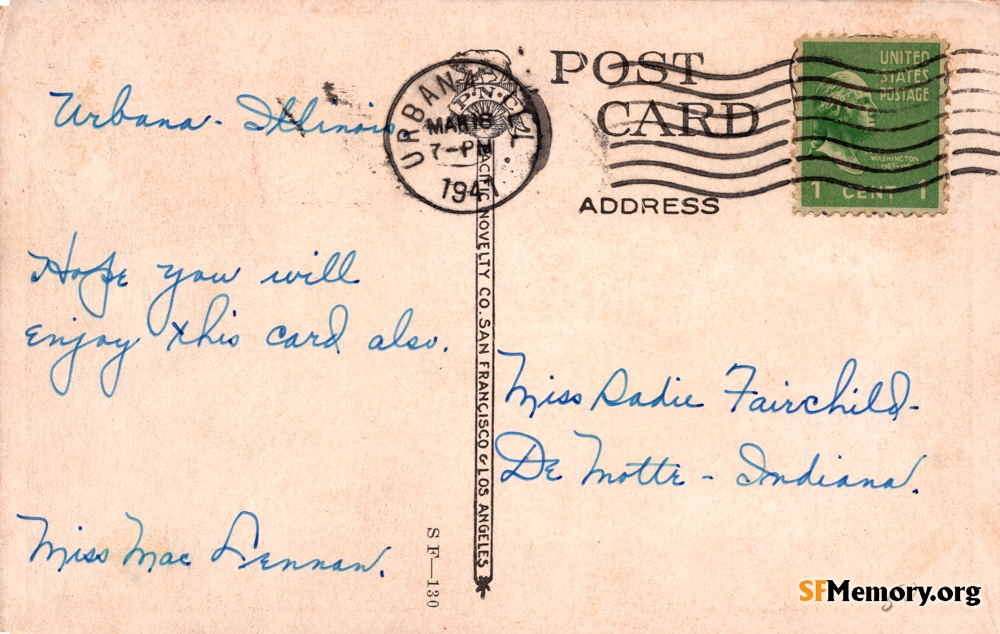 Urbana - Illinois
Hope you will
enjoy this card also.
Miss Mac Lennan.
URBANA, ILL.
MAR 18
7-PM
1941
P.N.C.
PACIFIC NOVELTY CO. SAN FRANCISCO & LOS ANGELES
SF—130
POST
CARD
ADDRESS
UNITED
STATES
POSTAGE
WASHINGTON
1 CENT 1
Miss Sadie Fairchild-
De Motte - Indiana.
SFMemory.org